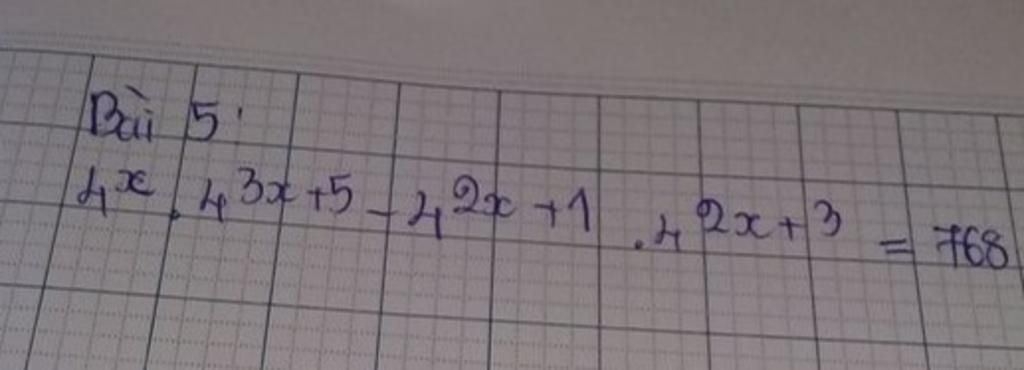 Bài 5:
4^x . 4^{3x+5} - 4^{2x+1} . 4^{2x+3} = 768